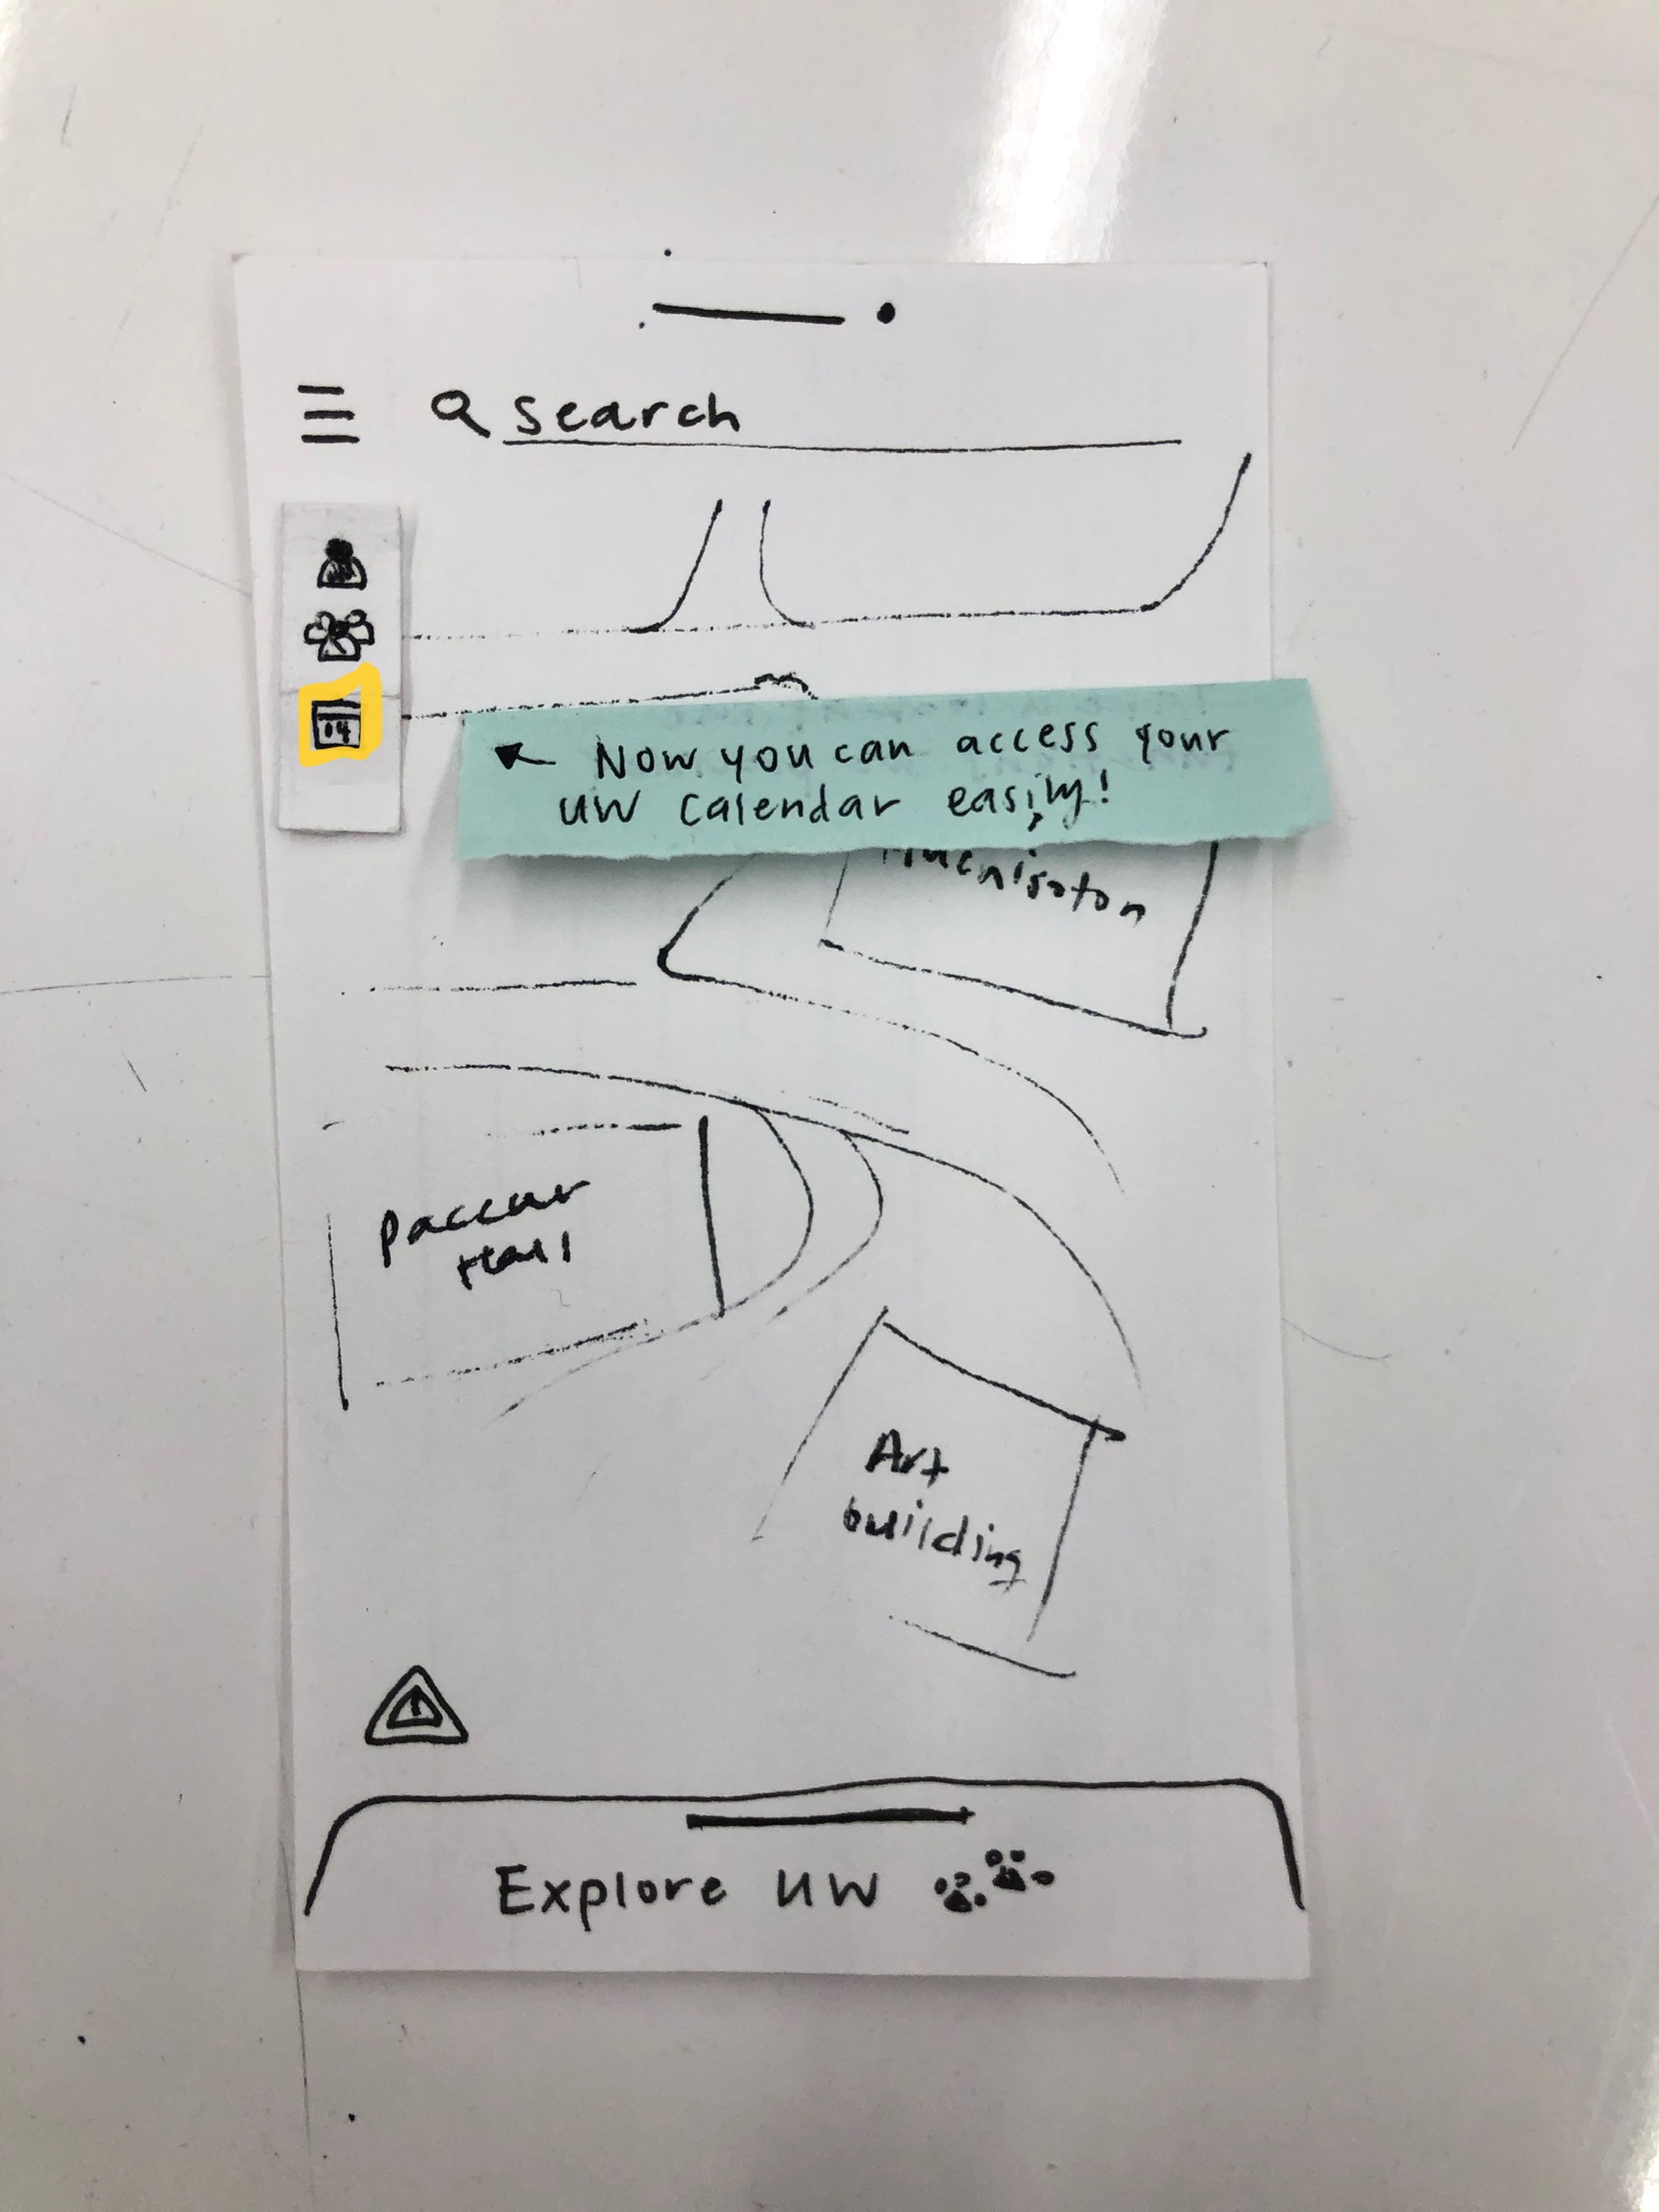 search
04
Now you can access your
UW calendar easily!
Paccar
Hall
Art
building
Explore UW